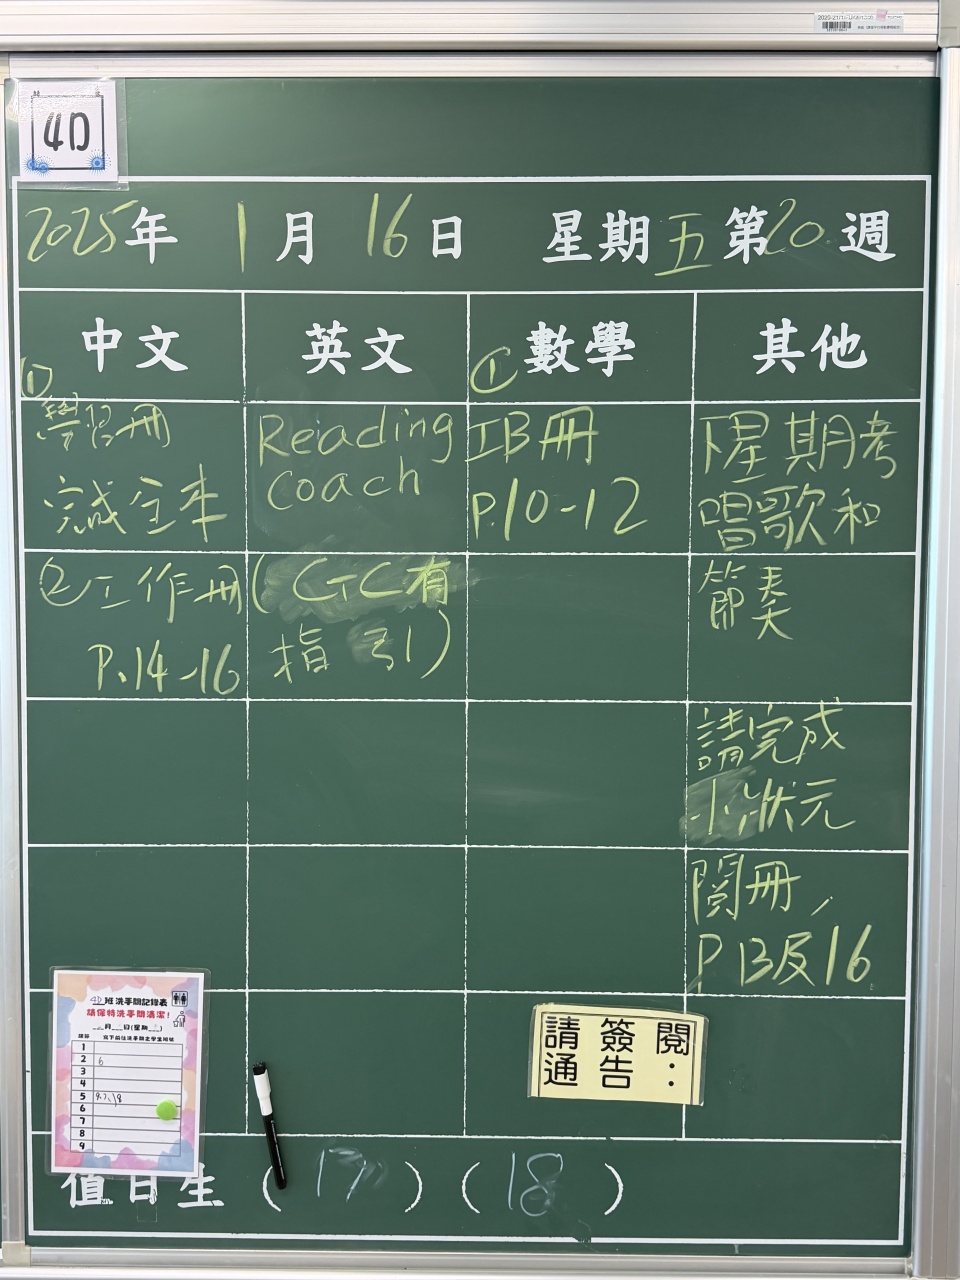 4D
2025年 1月 16日 星期五 第20週
中文 英文 數學 其他
(1) 學習冊
完成全本
② 工作冊
P.14-16
Reiading
coach
(GC有
指引)
① IB冊
P.10-12
下星期考
唱歌和
節奏
請完成
小狀元
閱冊,
P 13及16
4D班洗手間記錄表
請保持洗手間清潔!
月 日(星期 )
1
2 6
3
4
5
6
7
8
9
請簽閱
通告:
值日生 (17) (18)